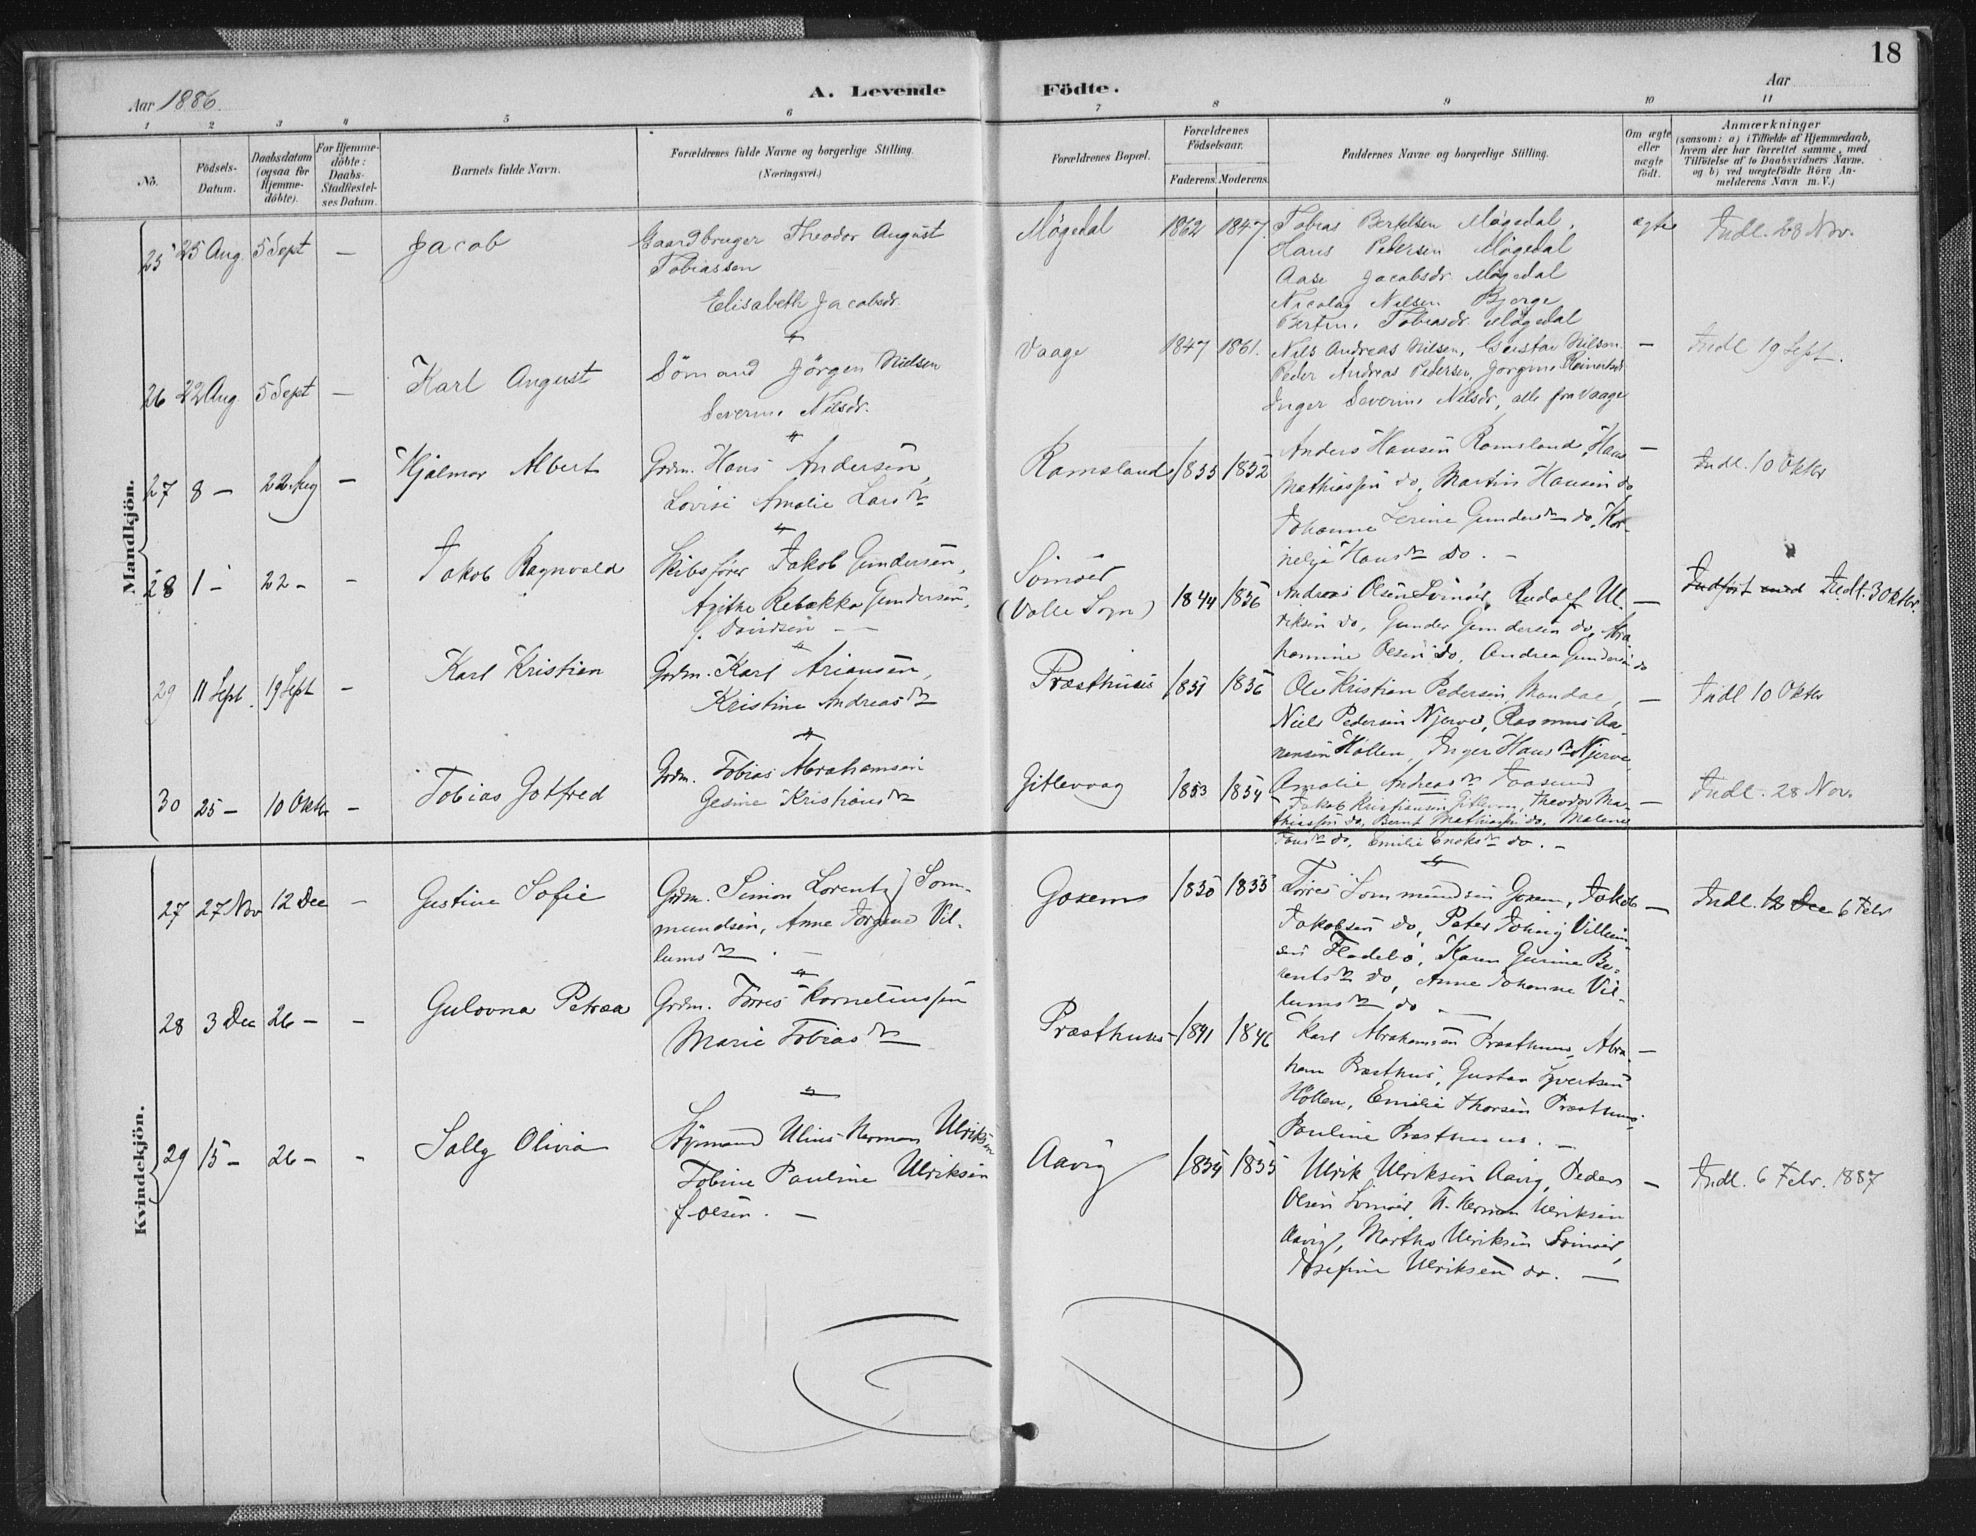 18
Aar 1886.
A. Levende Födte.
Aar
1 2 3 4 5 6 7 8 9 10 11
No.
Födsels-Datum.
Daabsdatum (ogsaa for Hjemme-döbte).
For Hjemme-döbte: Daabs-Stadfæstel-ses Datum.
Barnets fulde Navn.
Forældrenes fulde Navne og borgerlige Stilling.
(Næringsvei.)
Forældrenes Bopæl.
Forældrenes Födselsaar.
Faderens. Moderens.
Faddernes Navne og borgerlige Stilling.
Om ægte eller uægte födt.
Anmærkninger
(saasom: a) i Tilfælde af Hjemmedaab,
hvem der har forrettet samme, med
Tilföielse af to Daabsvidners Navne.
og b) ved uægtefödte Börn An-
melderens Navn m. V.)
Mandkjön.
25 25 Aug. 5 Sept — Jacob
Gaardbruger Theodor August
Tobiassen
Elisabeth Jacobsdr.
Møgedal 1862 1847
Tobias Bertelsen Møgedal,
Hans Pedersen Møgedal
Aase Jacobsdr Møgedal
Nicolay Nilsen Bjerge
Bertine Tobiasdr. Møgedal
ægte Indl. 28 Nov.
26 22 Aug 5 Sept — Karl August
Sömand Jörgen Nielsen
Severine Nilsdr.
Vaage 1847 1861.
Nils Andreas Nilsen, Gustav Nilsen
Peder Andreas Pedersen, Jorgine Reinertsdr
Inger Severine Nilsdr, alle fra Vaage
— Indl 19 Sept.
27 8 — 22 Aug — Hjalmar Albert
Grdm. Hans Andersen,
Lovise Amalie Larsdr
Ramsland 1855 1852
Anders Hansen Ramsland Hans
Mathiassen do, Martin Hansen do
Johanne Serine Gundersdr do, Kor-
nelia Hansdr do. —
— Indl. 10 Oktbr
28 1 — 22 — — Jakob Ragnvald
Skibsfører Jakob Gundersen,
Agithe Rebekka Gundersen,
f. Davidsen —
Svinöer
(Valle Sogn) 1844 1856
Andreas Olsen Svinör, Rudolf Ul-
riksen do, Gunder Gundersen do, Abra-
hamine Olsen do, Andrea Gundersen do
— Indført med Indl. 3 Oktbr
29 11 Sept. 19 Sept — Karl Kristian
Grdm. Karl Ariansen,
Kristine Andreasdr
Præsthuus 1851 1856
Ole Kristian Pedersen Mandal,
Niels Pedersen Njerve, Rasmus Aa-
nensen Hollen, Inger Hansdr Njerve,
Amalie Andreasdr
— Indl 10 Oktbr
30 25 — 10 Oktbr — Tobias Gotfred
Grdm. Tobias Abrahamsen
Gesine Kristiansdr
Gitlevaag 1853 1854
Jakob Kristiansen Gitlevaag, Theodor Ma-
thiassen do, Bernt Mathiassen do, Malene
do, Emilie Enoksdr do. —
— Indl. 28 Nov.
Kvindekjön.
27 27 Nov 12 Dec — Gustine Sofie
Grdm. Simon Lorentz Som-
mundsen, Anne Torgine Vil-
lumsdr. —
Goxem 1850 1855
Torres Sommundsen Goxem, Jakob
Jakobsen do, Peter Johny Villum-
sen Fladebö, Karen Gurine Be-
rentsdr do, Anne Johanne Vil-
lumsdr do —
— Indl. 12 Dec 6 Febr
28 3 Dec 26 — — Gulovna Petrea
Grdm. Torres Korneliussen
Marie Tobiasdr
Præsthuus 1841 1846
Karl Abrahamsen Præsthuus, Abra-
ham Præsthus, Gustav Syvertsen
Hollen, Emilie Thorsen Præsthuus,
Pauline Præsthuus. —
—
29 15 — 26 — — Sally Olivia
Styrmand Ulius Herman Ulriksen
Tobine Pauline Ulriksen
f. Olsen. —
Aavig 1854 1855
Ulrik Ulriksen Aavig, Peder
Olsen Svinöer, U. Herman Ulriksen
Aavig, Martha Ulriksen Svinöer,
Josefine Ulriksen do. —
— Indl. 6 Febr. 1887